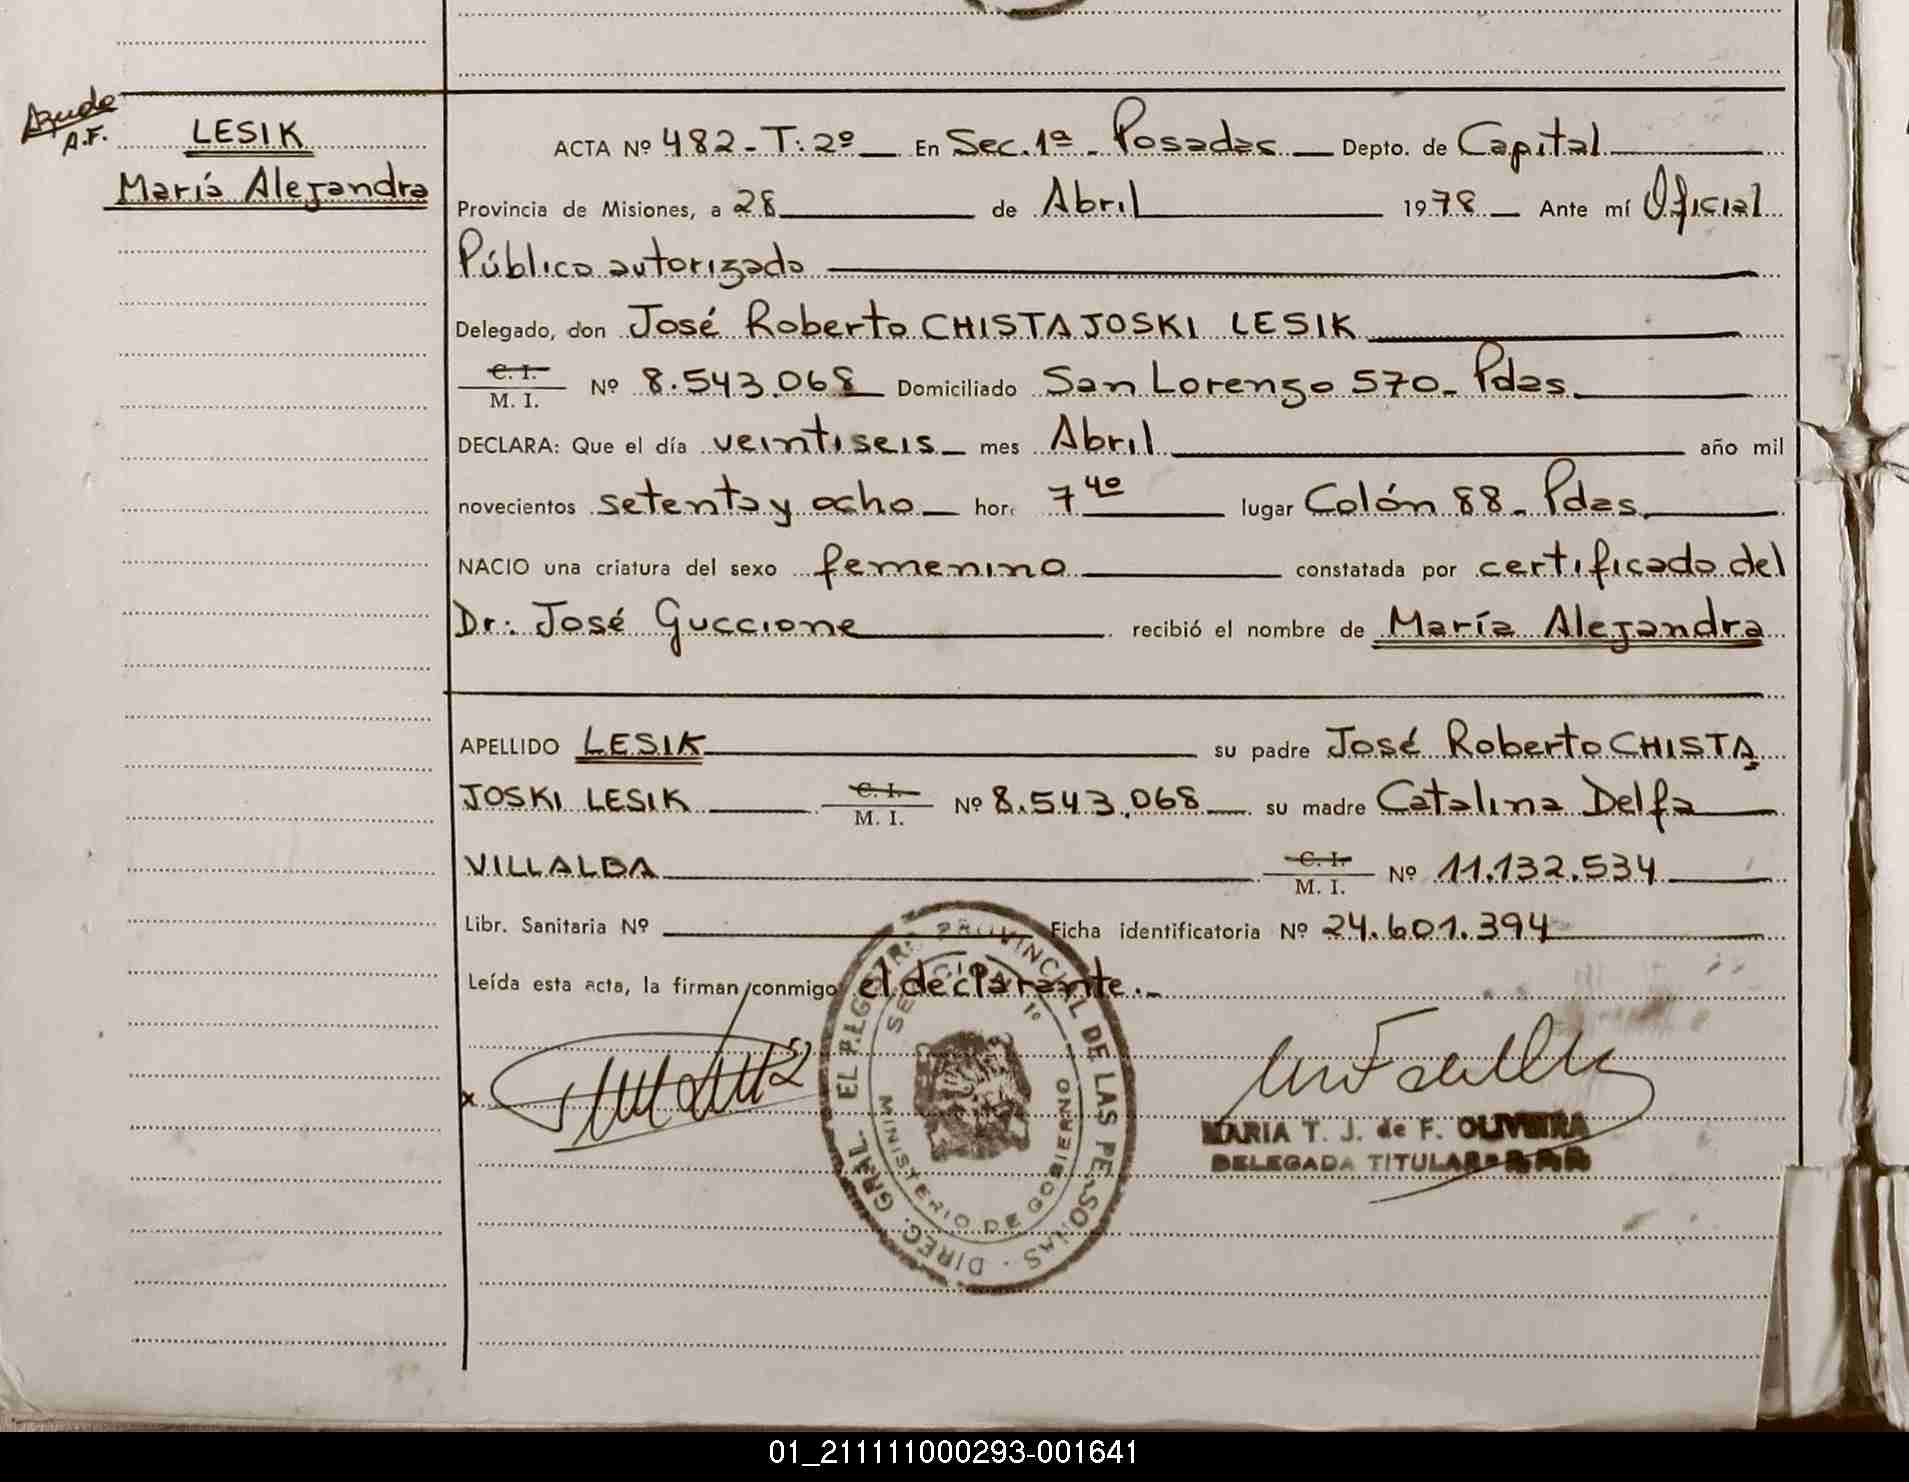 A.F.
LESIK
María Alejandra
ACTA Nº 482-T:2º En Sec.1ª- Posadas Depto. de Capital
Provincia de Misiones, a 28 de Abril 1978 Ante mí Oficial
Público autorizado
Delegado, don José Roberto CHISTAJOSKI LESIK
C. I.
M. I. Nº 8.543.068 Domiciliado San Lorenzo 570- Pdas.
DECLARA: Que el día veintiseis mes Abril año mil
novecientos setenta y ocho hor. 7 40 lugar Colón 88- Pdas.
NACIO una criatura del sexo femenino constatada por certificado del
Dr: José Guccione recibió el nombre de María Alejandra
APELLIDO LESIK su padre José Roberto CHISTA
JOSKI LESIK C. I. M. I. Nº 8.543.068 su madre Catalina Delfa
VILLALBA C. I. M. I. Nº 11.132.534
Libr. Sanitaria Nº Ficha identificatoria Nº 24.601.394
Leída esta acta, la firman conmigo el declarante.-
DIREC. GRAL. EL REGISTRO PROVINCIAL DE LAS PERSONAS
SECCIONAL 1º
MINISTERIO DE GOBIERNO
x
MARIA T. J. de F. OLIVEIRA
DELEGADA TITULAR
01_211111000293-001641